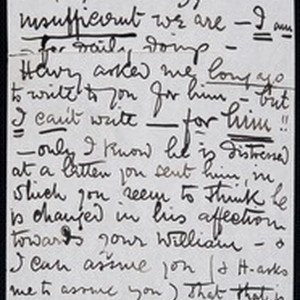 insufficient we are - I am
- for daily doing -
Henry asked me, long ago
to write to you for him - but
I can't write — for him!!
- only I know he is distressed
at a letter you sent him, in
which you seem to think he
is changed in his affection
towards your William - &
I can assure you (& H. asks
me to assure you) that that is